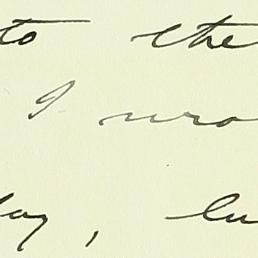 to the
I wro
day, bu